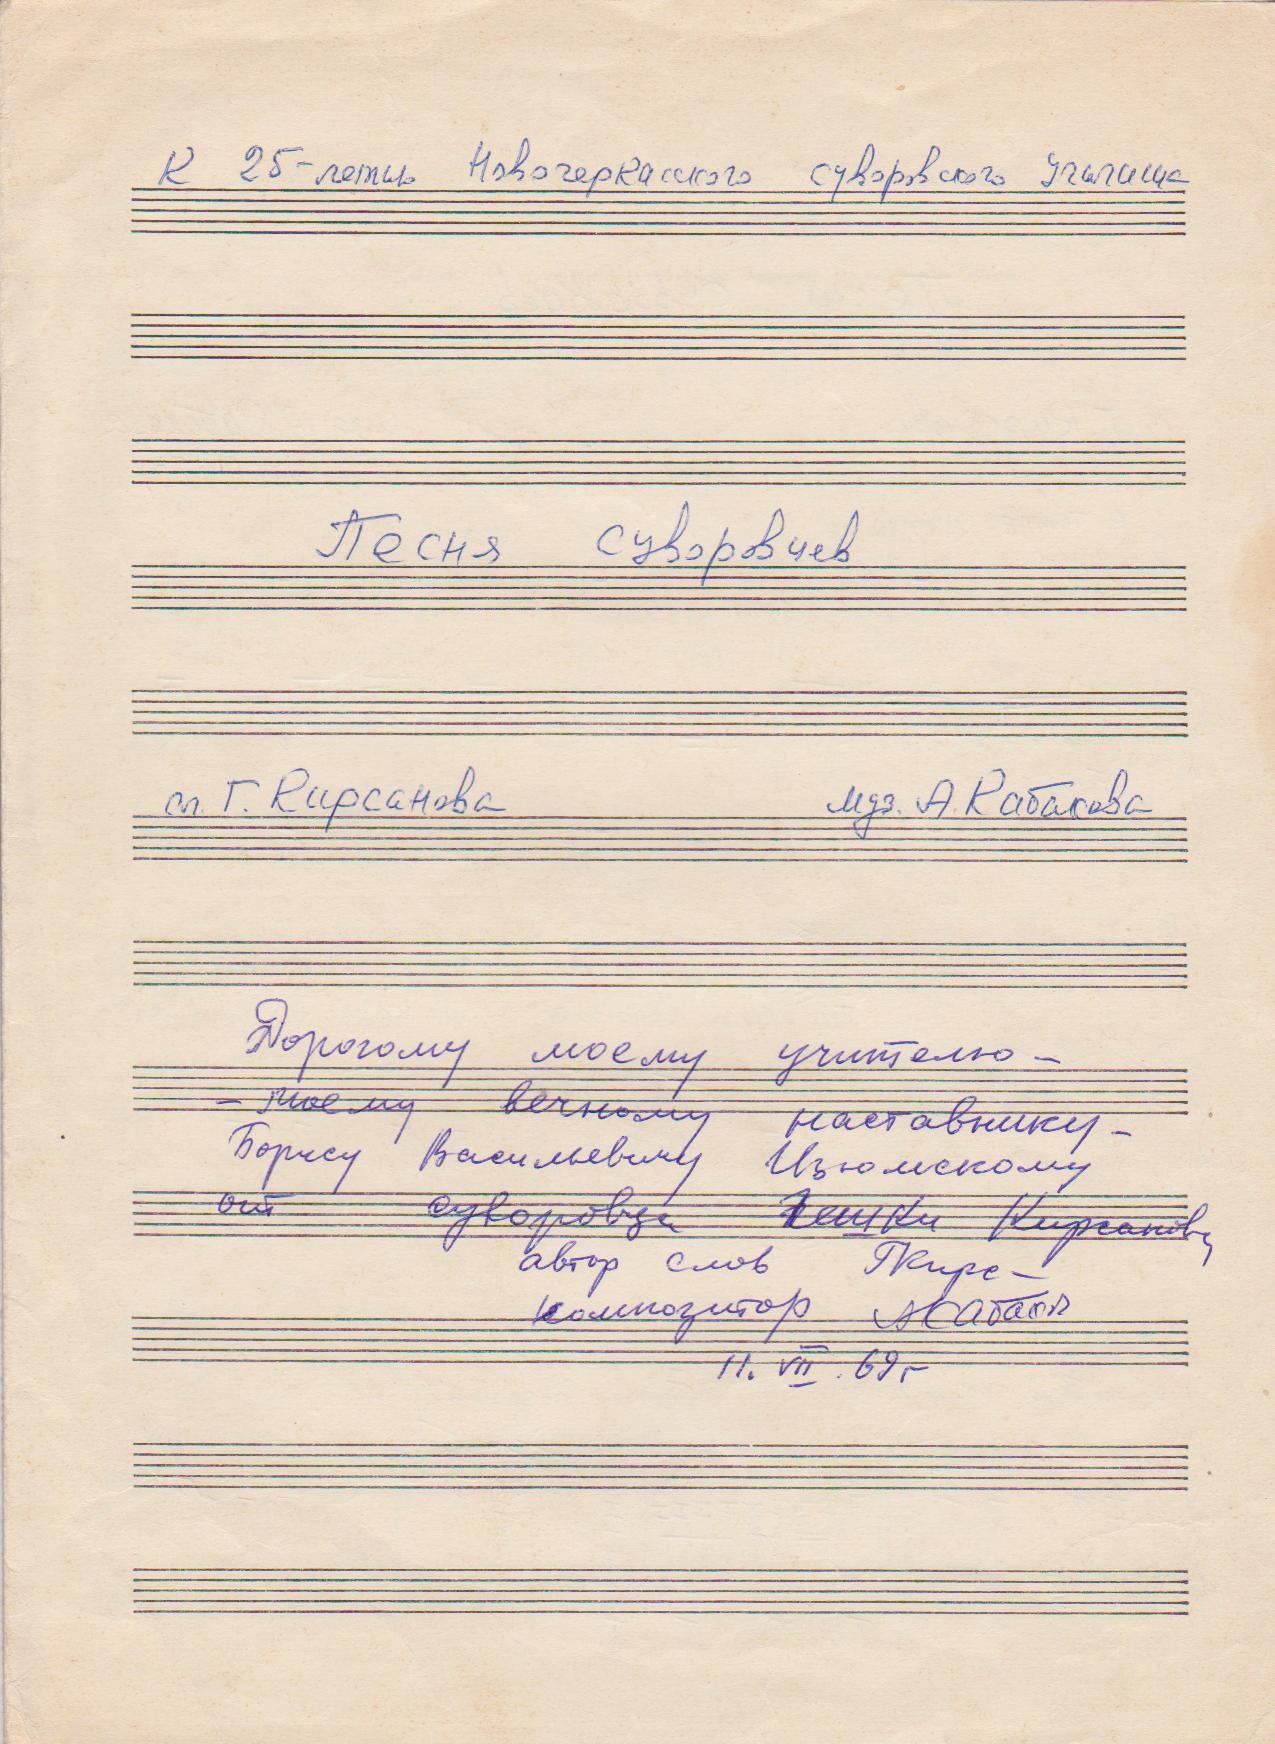 К 25-летию Новочеркасского суворовского училища
Песня суворовцев
сл. Г. Кирсанова муз. А. Кабакова
Дорогому моему учителю –
– моему вечному наставнику –
Борису Васильевичу Изюмскому
от суворовца Гешки Кирсанова
автор слов ГКирс–
композитор АКабаков
11. VII. 69 г